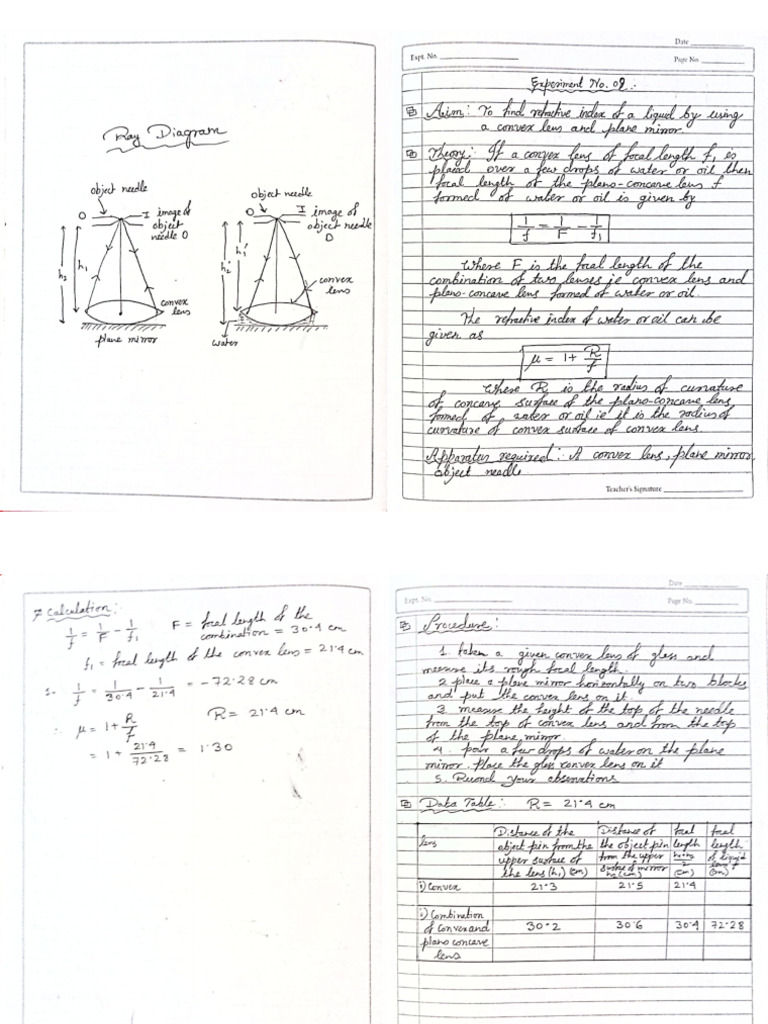 Ray Diagram
object needle
O
I image of
object
needle O
h2
h1
convex
lens
plane mirror
object needle
O
I image of
object needle
O
h2'
h1'
convex
lens
water
Date
Expt. No.
Page No.
Experiment No. 02:
Aim: To find refractive index of a liquid by using
a convex lens and plane mirror.
Theory: If a convex lens of focal length f1 is
placed over a few drops of water or oil then
focal length of the plano-concave lens f
formed of water or oil is given by
1/f = 1/F - 1/f1
Where F is the focal length of the
combination of two lenses ie convex lens and
plano-concave lens formed of water or oil.
The refractive index of water or oil can be
given as
μ = 1+ R/f
Where R is the radius of curvature
of concave surface of the plano-concave lens,
formed of water or oil ie it is the radius of
curvature of convex surface of convex lens.
Apparatus required: A convex lens, plane mirror,
object needle
Teacher's Signature
Calculation:
1/f = 1/F - 1/f1 F = focal length of the
combination = 30.4 cm
f1 = focal length of the convex lens = 21.4 cm
1/f = 1/30.4 - 1/21.4 = -72.28 cm
∴ μ = 1+ R/f R = 21.4 cm
= 1+ 21.4/72.28 = 1.30
Date
Expt. No.
Page No.
Procedure:
1. taken a given convex lens of glass and
measure its rough focal length.
2. place a plane mirror horizontally on two blocks
and put the convex lens on it.
3. measure the height of the top of the needle
from the top of convex lens and from the top
of the plane mirror.
4. pour a few drops of water on the plane
mirror. Place the glass convex lens on it
5. Record your observations
Data Table: R = 21.4 cm
lens
Distance of the
object pin from the
upper surface of
the lens (h1) (cm)
Distance of
the object pin
from the upper
surface of mirror
h2 (cm)
focal
length
h1+h2/2
(cm)
focal
length
of liquid
lens f
(cm)
i) Convex 21.3 21.5 21.4
ii) Combination
of convex and 30.2 30.6 30.4 72.28
plano concave
lens